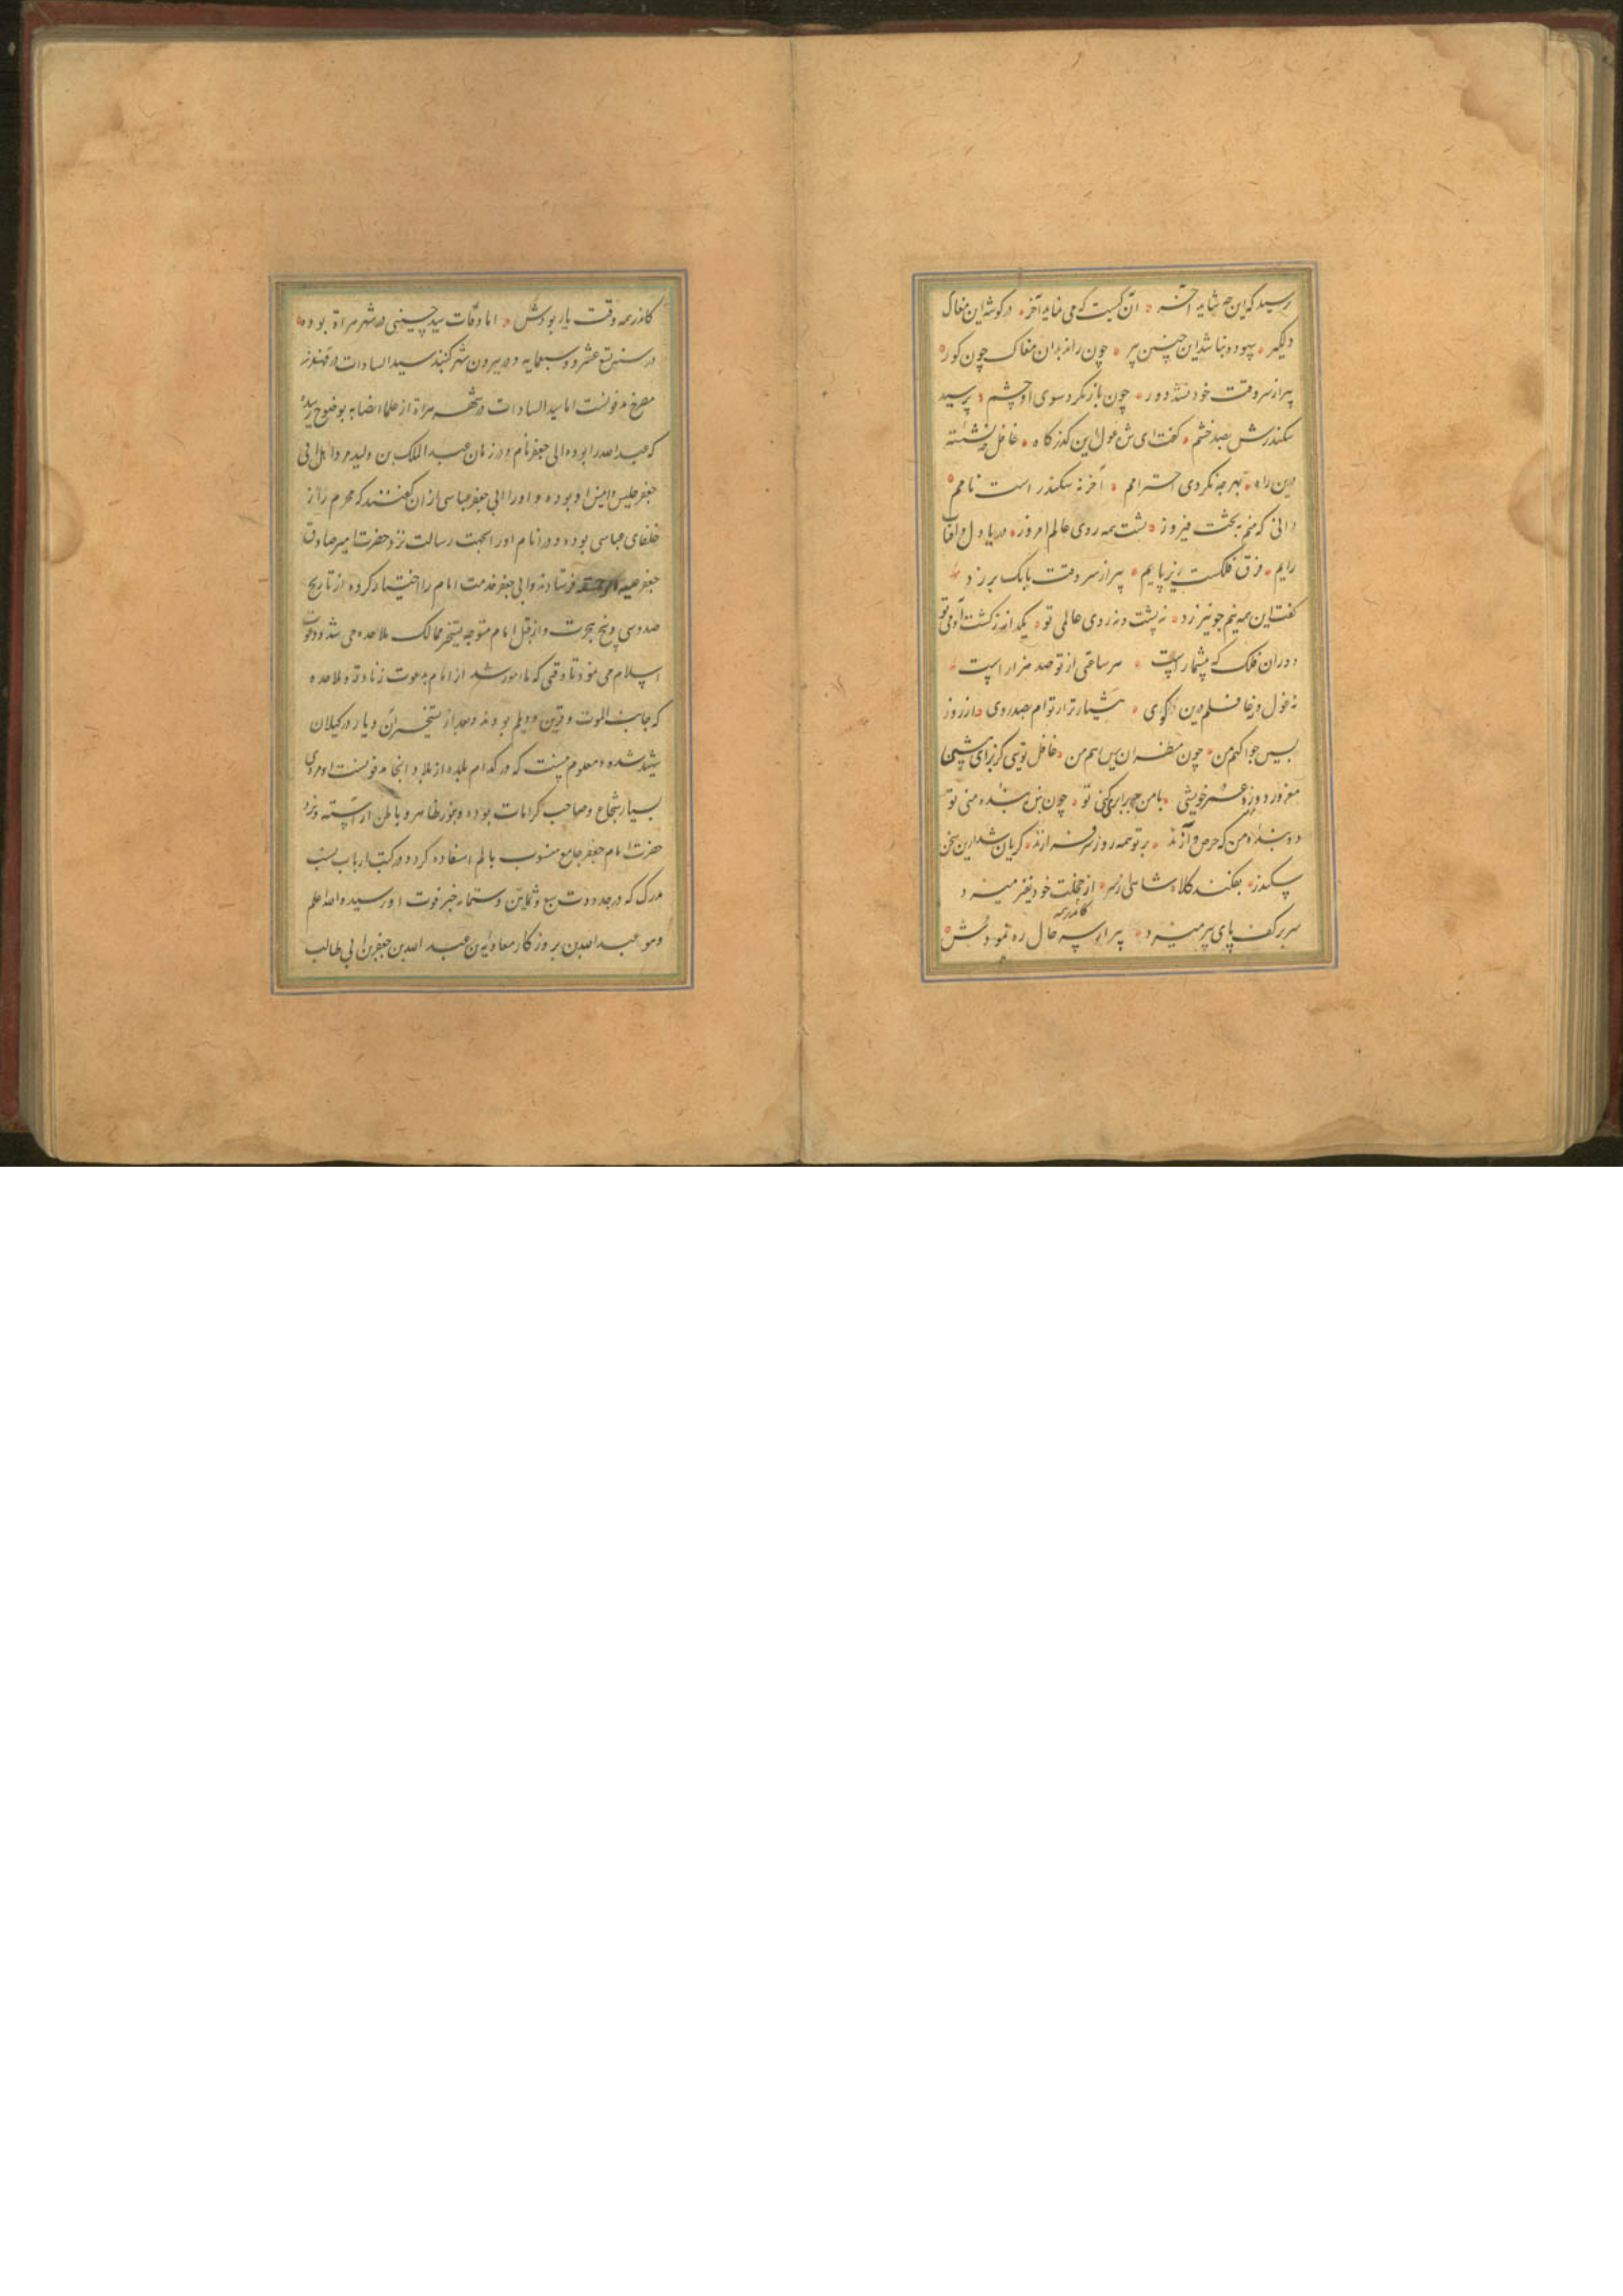 پرسید که این چه شاید آخر ه آن کیست که می نماید آخر ه در گوشه این مغاک
دلگیر ه بیهوده نباشد این چنین پیر ه چون راند بدان مغاک چون کور ه
پیر از سر وقت خود نشد دور ه چون باز نکرد سوی او چشم ه پرسید
سکندرش بصد خشم ه گفت ای شده غول این گذرگاه ه غافل چه نشسته
درین راه ه بهر چه نکردی احترامم ه آخر نه سکندر است نامم ه
دانی که منم به بخت فیروز ه پشت همه روی عالم امروز ه دریا دل و آفتاب
رایم ه فرق فلکست زیر پایم ه پیر از سر وقت بانگ برزد
گفت این همه نیم جو نیرزد ه نه پشت و نه روی عالمی تو ه یکدانه ز کشت آدمی تو
دوران فلک که بیشمار است ه هر ساعتی از تو صد هزار است
نه غول و نه غافلم درین کوی ه هشیارتر از توام بصد روی ه از روز
پسین چو آگهم من ه چون منتظران برین رهم من ه غافل تویی کز برای بیشی
مغرور دو روزه عمر خویشی ه با من چه برابری کنی تو ه چون بنده بنده منی تو
دو بنده من که حرص و آزند ه بر تو همه روز سرفرازند ه گریان شد ازین سخن
سکندر ه بفکند کلاه شاهی از سر ه از خجلت خود نفیر میزد
سر بر کف پای پیر میزد ه پیر از سر حال ره نمودش ه
کاندر همه
کاندر همه وقت یار بودش ه اما وفات سید حسینی در شهر هراة بوده
در سنه تسع عشر و سبعمایه و در بیرون شهر گنبد سید السادات در قهندز
مصرخ مدفونست اما سید السادات در شهر هراة از علما انصابه بوضوح رسیده
که عبدالله را بوده ابی جعفر نام و در زمان عبد الملک بن ولید مروان ابی
جعفر جلیس و انیس او بوده و او را ابی جعفر عباسی از آن گفتندکه محرم راز
خلفای عباسی بوده و در انام او را بجهت رسالت نزد حضرت امیر صادق
جعفر علیه فرستادند و ابی جعفر خدمت امام را اختیار کرده از تاریخ
صد و سی و پنج هجرت و از قبل امام متوجه تسخیر ممالک ملاحده می شد و دعوت
اسلام می نمود تا وقتی که مامور شد از امام به دعوت زنادقه و ملاحده
که جانب الموت و قزین و دیلم بودند و بعد از تسخیر آن دیار در گیلان
شهید شده و معلوم نیست که در کدام بلده از بلاد انجا مدفونست او مردی
بسیار شجاع و صاحب کرامات بوده و بنور ظاهر و باطن آراسته و نزد
حضرت امام جعفر جامع منسوب بالم استفاده کرده و در کتب ارباب نسب
مدرک که در حدود سبع و ثمانین و ستمایه خبر فوت او رسیده والله اعلم
وهو عبد الله بن بروز کار معاویه بن عبد الله بن جعفر بن ابی طالب